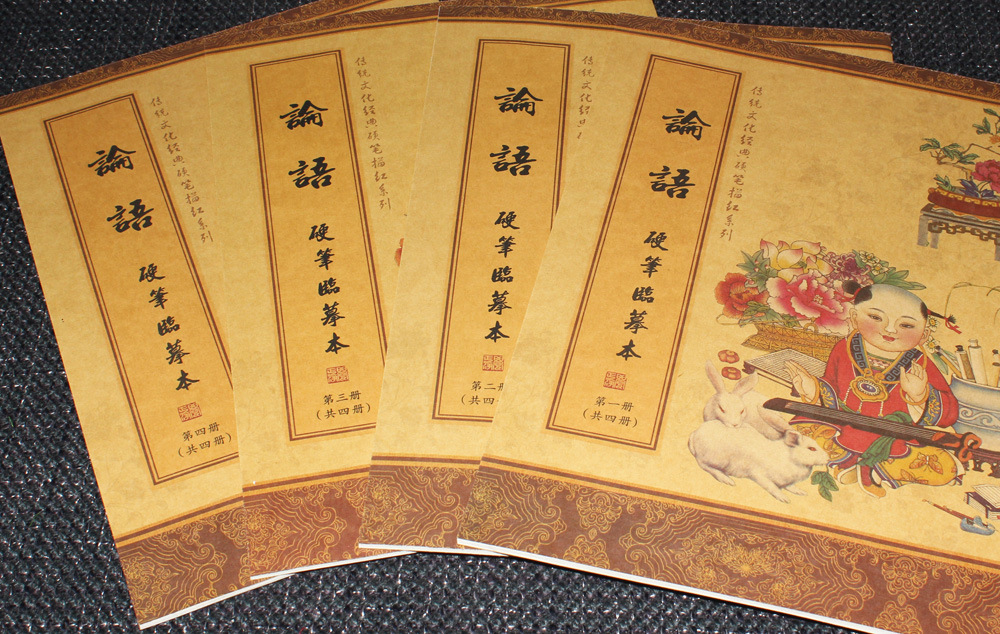 論語
硬筆臨摹本
第四册
(共四册)
传统文化经典硬笔描红系列
論語
硬筆臨摹本
第三册
(共四册)
传统文化经典硬笔描红系列
論語
硬筆臨摹本
第二册
(共四
传统文化经
論語
硬筆臨摹本
第一册
(共四册)
传统文化经典硬笔描红系列